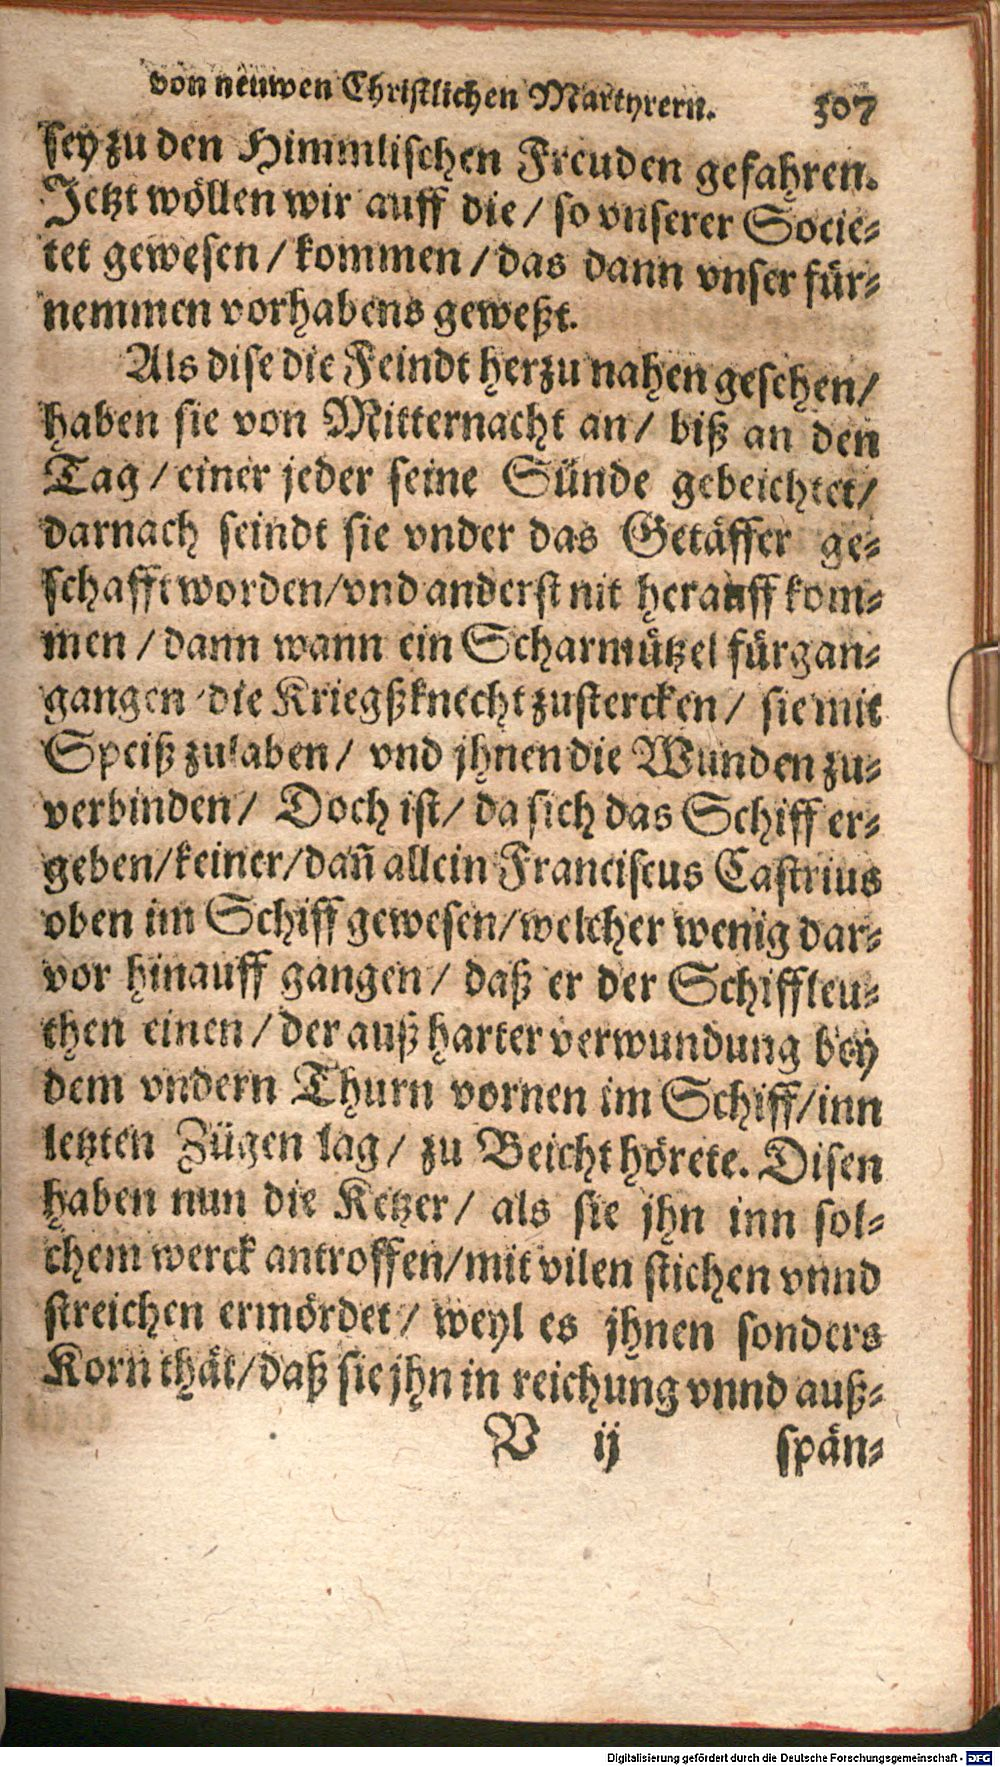 von neuwen Christlichen Martyrern. 307
sey zu den Himmlischen Freuden gefahren.
Jetzt wöllen wir auff die / so vnserer Socie-
tet gewesen / kommen / das dann vnser für-
nemmen vorhabens geweßt.
Als dise die Feindt herzu nahen gesehen /
haben sie von Mitternacht an / biß an den
Tag / einer jeder seine Sünde gebeichtet /
darnach seindt sie vnder das Getäffer ge-
schafft worden / vnd anderst nit herauff kom-
men / dann wann ein Scharmützel fürgan-
gangen die Kriegßknecht zustercken / sie mit
Speiß zulaben / vnd jhnen die Wunden zu-
verbinden / Doch ist / da sich das Schiff er-
geben / keiner / dañ allein Franciscus Castrius
oben im Schiff gewesen / welcher wenig dar-
vor hinauff gangen / daß er der Schiffleu-
then einen / der auß harter verwundung bey
dem vndern Thurn vornen im Schiff / inn
letzten Zügen lag / zu Beicht hörete. Disen
haben nun die Ketzer / als sie jhn inn sol-
chem werck antroffen / mit vilen stichen vnnd
streichen ermördet / weyl es jhnen sonders
Korn thät / daß sie jhn in reichung vnnd auß-
V ij spän-
Digitalisierung gefördert durch die Deutsche Forschungsgemeinschaft - DFG